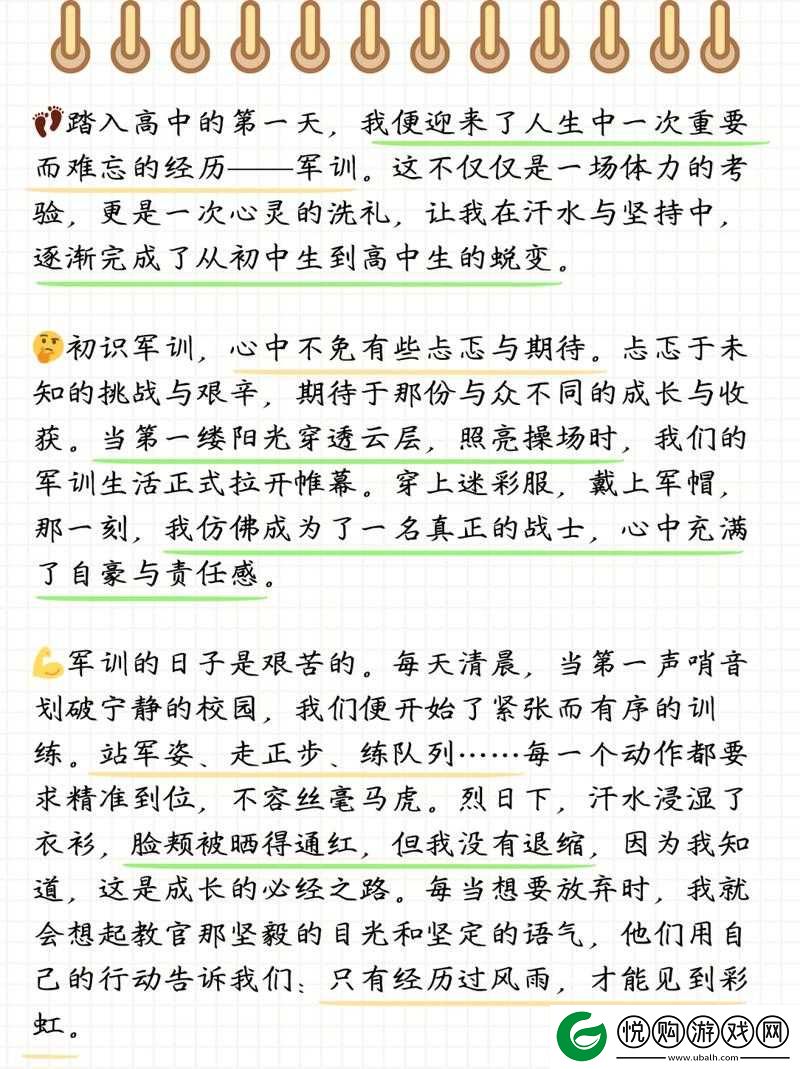 踏入高中的第一天，我便迎来了人生中一次重要
而难忘的经历——军训。这不仅仅是一场体力的考
验，更是一次心灵的洗礼，让我在汗水与坚持中，
逐渐完成了从初中生到高中生的蜕变。
初识军训，心中不免有些忐忑与期待。忐忑于未
知的挑战与艰辛，期待于那份与众不同的成长与收
获。当第一缕阳光穿透云层，照亮操场时，我们的
军训生活正式拉开帷幕。穿上迷彩服，戴上军帽，
那一刻，我仿佛成为了一名真正的战士，心中充满
了自豪与责任感。
军训的日子是艰苦的。每天清晨，当第一声哨音
划破宁静的校园，我们便开始了紧张而有序的训
练。站军姿、走正步、练队列……每一个动作都要
求精准到位，不容丝毫马虎。烈日下，汗水浸湿了
衣衫，脸颊被晒得通红，但我没有退缩，因为我知
道，这是成长的必经之路。每当想要放弃时，我就
会想起教官那坚毅的目光和坚定的语气，他们用自
己的行动告诉我们：只有经历过风雨，才能见到彩
虹。
悦购游戏网
www.ubalh.com